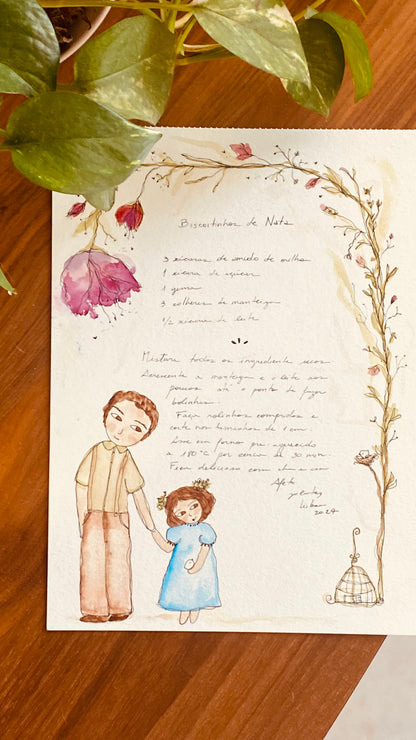 Biscoitinhos de Nata
3 xícaras de amido de milho
1 xícara de açúcar
1 gema
3 colheres de manteiga
1/2 xícara de leite
Misture todos os ingrediente secos
Acrescente a manteiga e o leite aos
poucos até o ponto de fazer
bolinhas.
Faça rolinhos compridos e
corte nos tamanhos de 1 cm.
Leve em forno pré-aquecido
a 180°C por cerca de 30 min.
Ficam deliciosos com chá e com
Afeto
2024